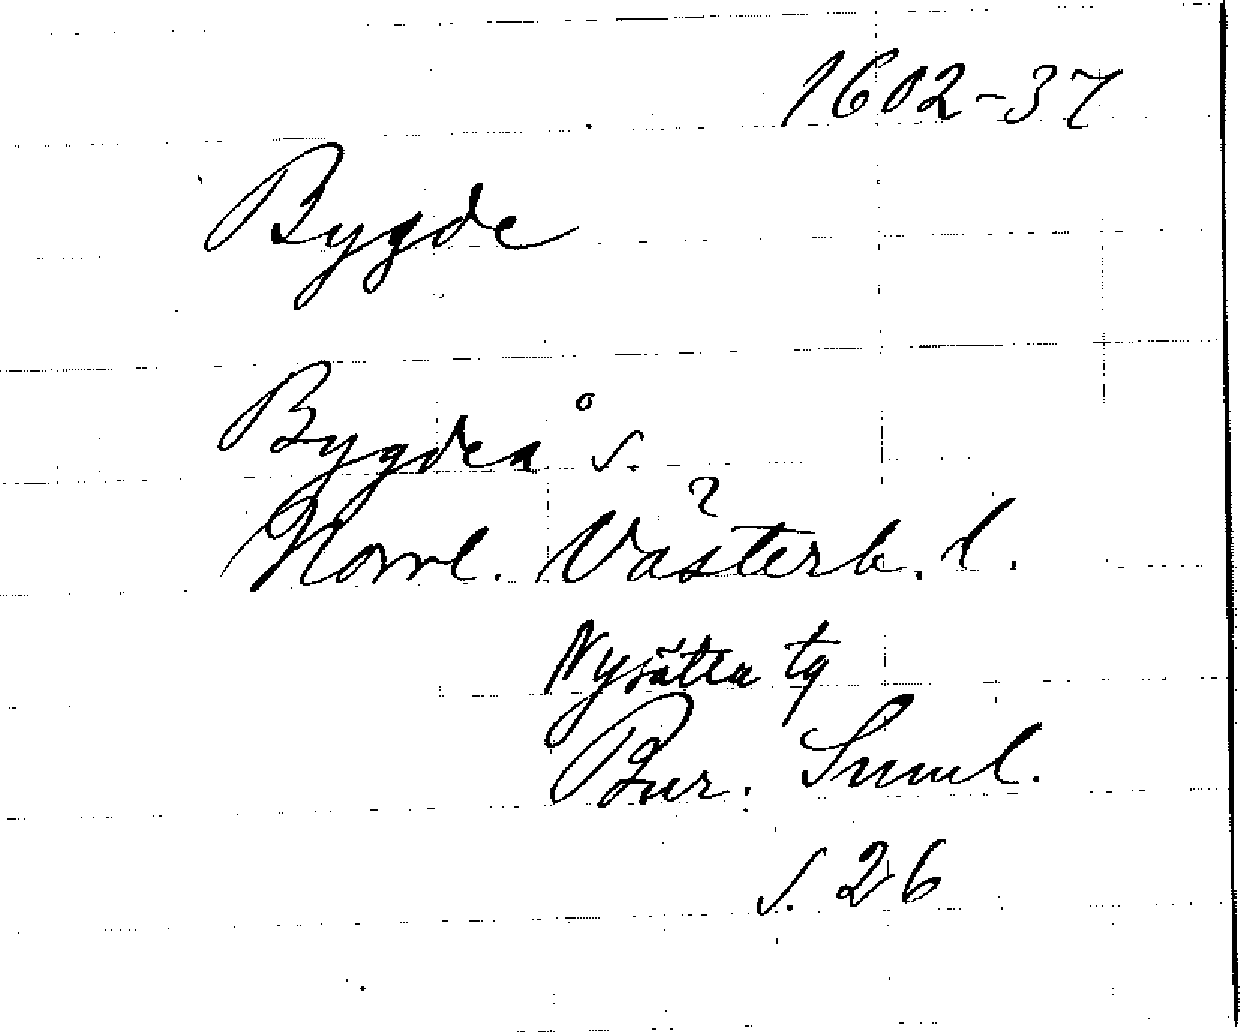 1602-37
Bygde
Bygdeå s.
?
Norrl. Västerb. l.
Nysätra tg
Bur. Suml.
s. 26